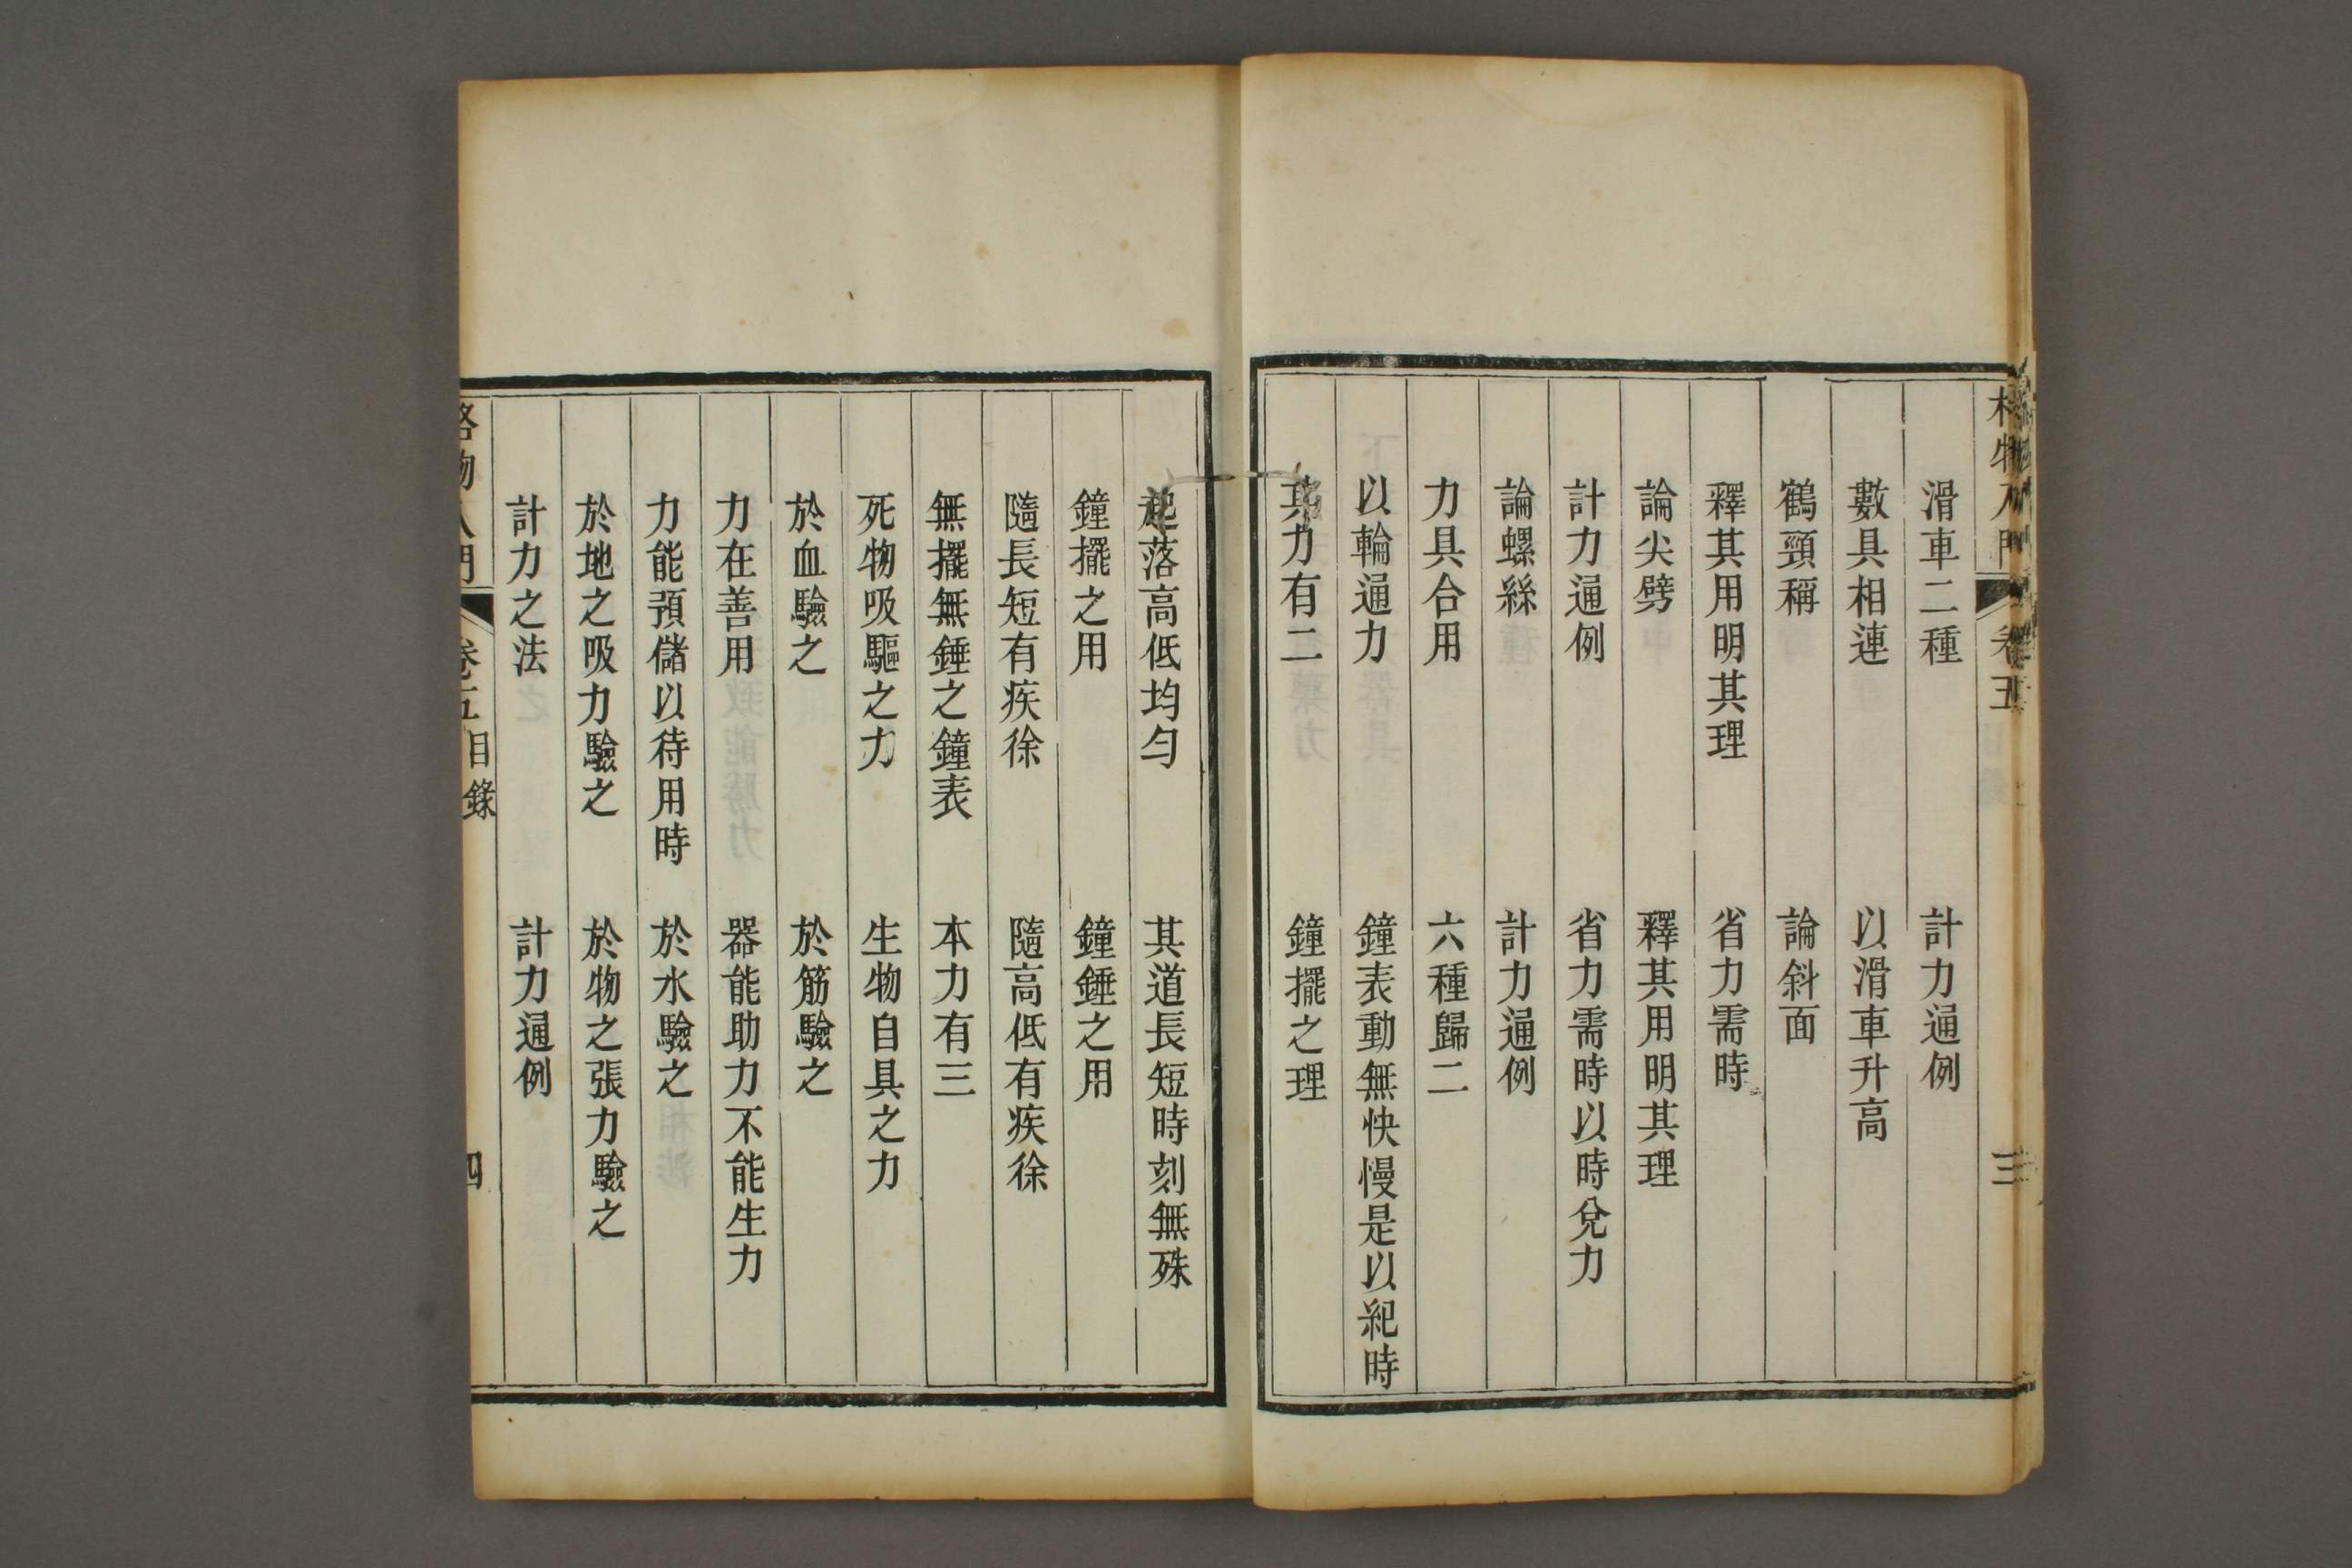 格物入門 卷五 三
滑車二種 計力通例
數具相連 以滑車升高
鶴頸稱 論斜面
釋其用明其理 省力需時
論尖劈 釋其用明其理
計力通例 省力需時以時兌力
論螺絲 計力通例
力具合用 六種歸二
以輪通力 鐘表動無快慢是以紀時
其力有二 鐘擺之理
起落高低均勻 其道長短時刻無殊
鐘擺之用 鐘錘之用
隨長短有疾徐 隨高低有疾徐
無擺無錘之鐘表 本力有三
死物吸驅之力 生物自具之力
於血驗之 於筋驗之
力在善用 器能助力不能生力
力能預儲以待用時 於水驗之
於地之吸力驗之 於物之張力驗之
計力之法 計力通例
格物入門 卷五目錄 四